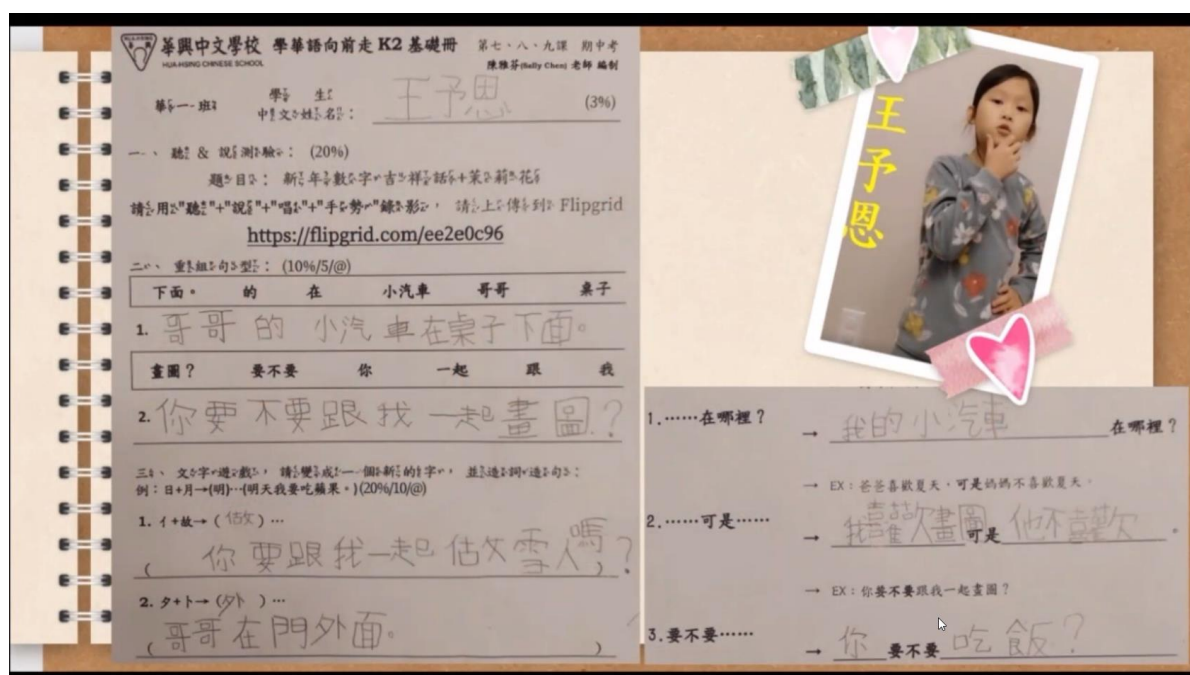 華興中文學校 學華語向前走 K2 基礎冊 第七、八、九課 期中考
HUA HSING CHINESE SCHOOL 陳雅芬(Sally Chen) 老師 編制
華一一班 學生中文姓名: 王予恩 (3%)
一、聽 & 說測驗: (20%)
題目: 新年數字吉祥話+茉莉花
請用"聽"+"說"+"唱"+"手勢"錄影, 請上傳到 Flipgrid
https://flipgrid.com/ee2e0c96
二、重組句型: (10%/5/@)
下面。 的 在 小汽車 哥哥 桌子
1. 哥哥的 小汽車在桌子下面。
畫圖? 要不要 你 一起 跟 我
2. 你要不要跟我一起畫圖?
三、文字遊戲, 請變成一個新的字, 並造詞造句:
例:日+月→(明)…(明天我要吃蘋果。)(20%/10/@)
1. 亻+故→(做)…
( 你要跟我一起做雪人嗎?)
2. 夕+卜→(外 )…
( 哥哥在門外面。 )
王予恩
1.……在哪裡? → 我的小汽車 在哪裡?
→ EX:爸爸喜歡夏天,可是媽媽不喜歡夏天。
2.……可是…… → 我喜歡畫圖 可是 他不喜歡 。
→ EX:你要不要跟我一起畫圖?
3.要不要…… → 你 要不要 吃飯?